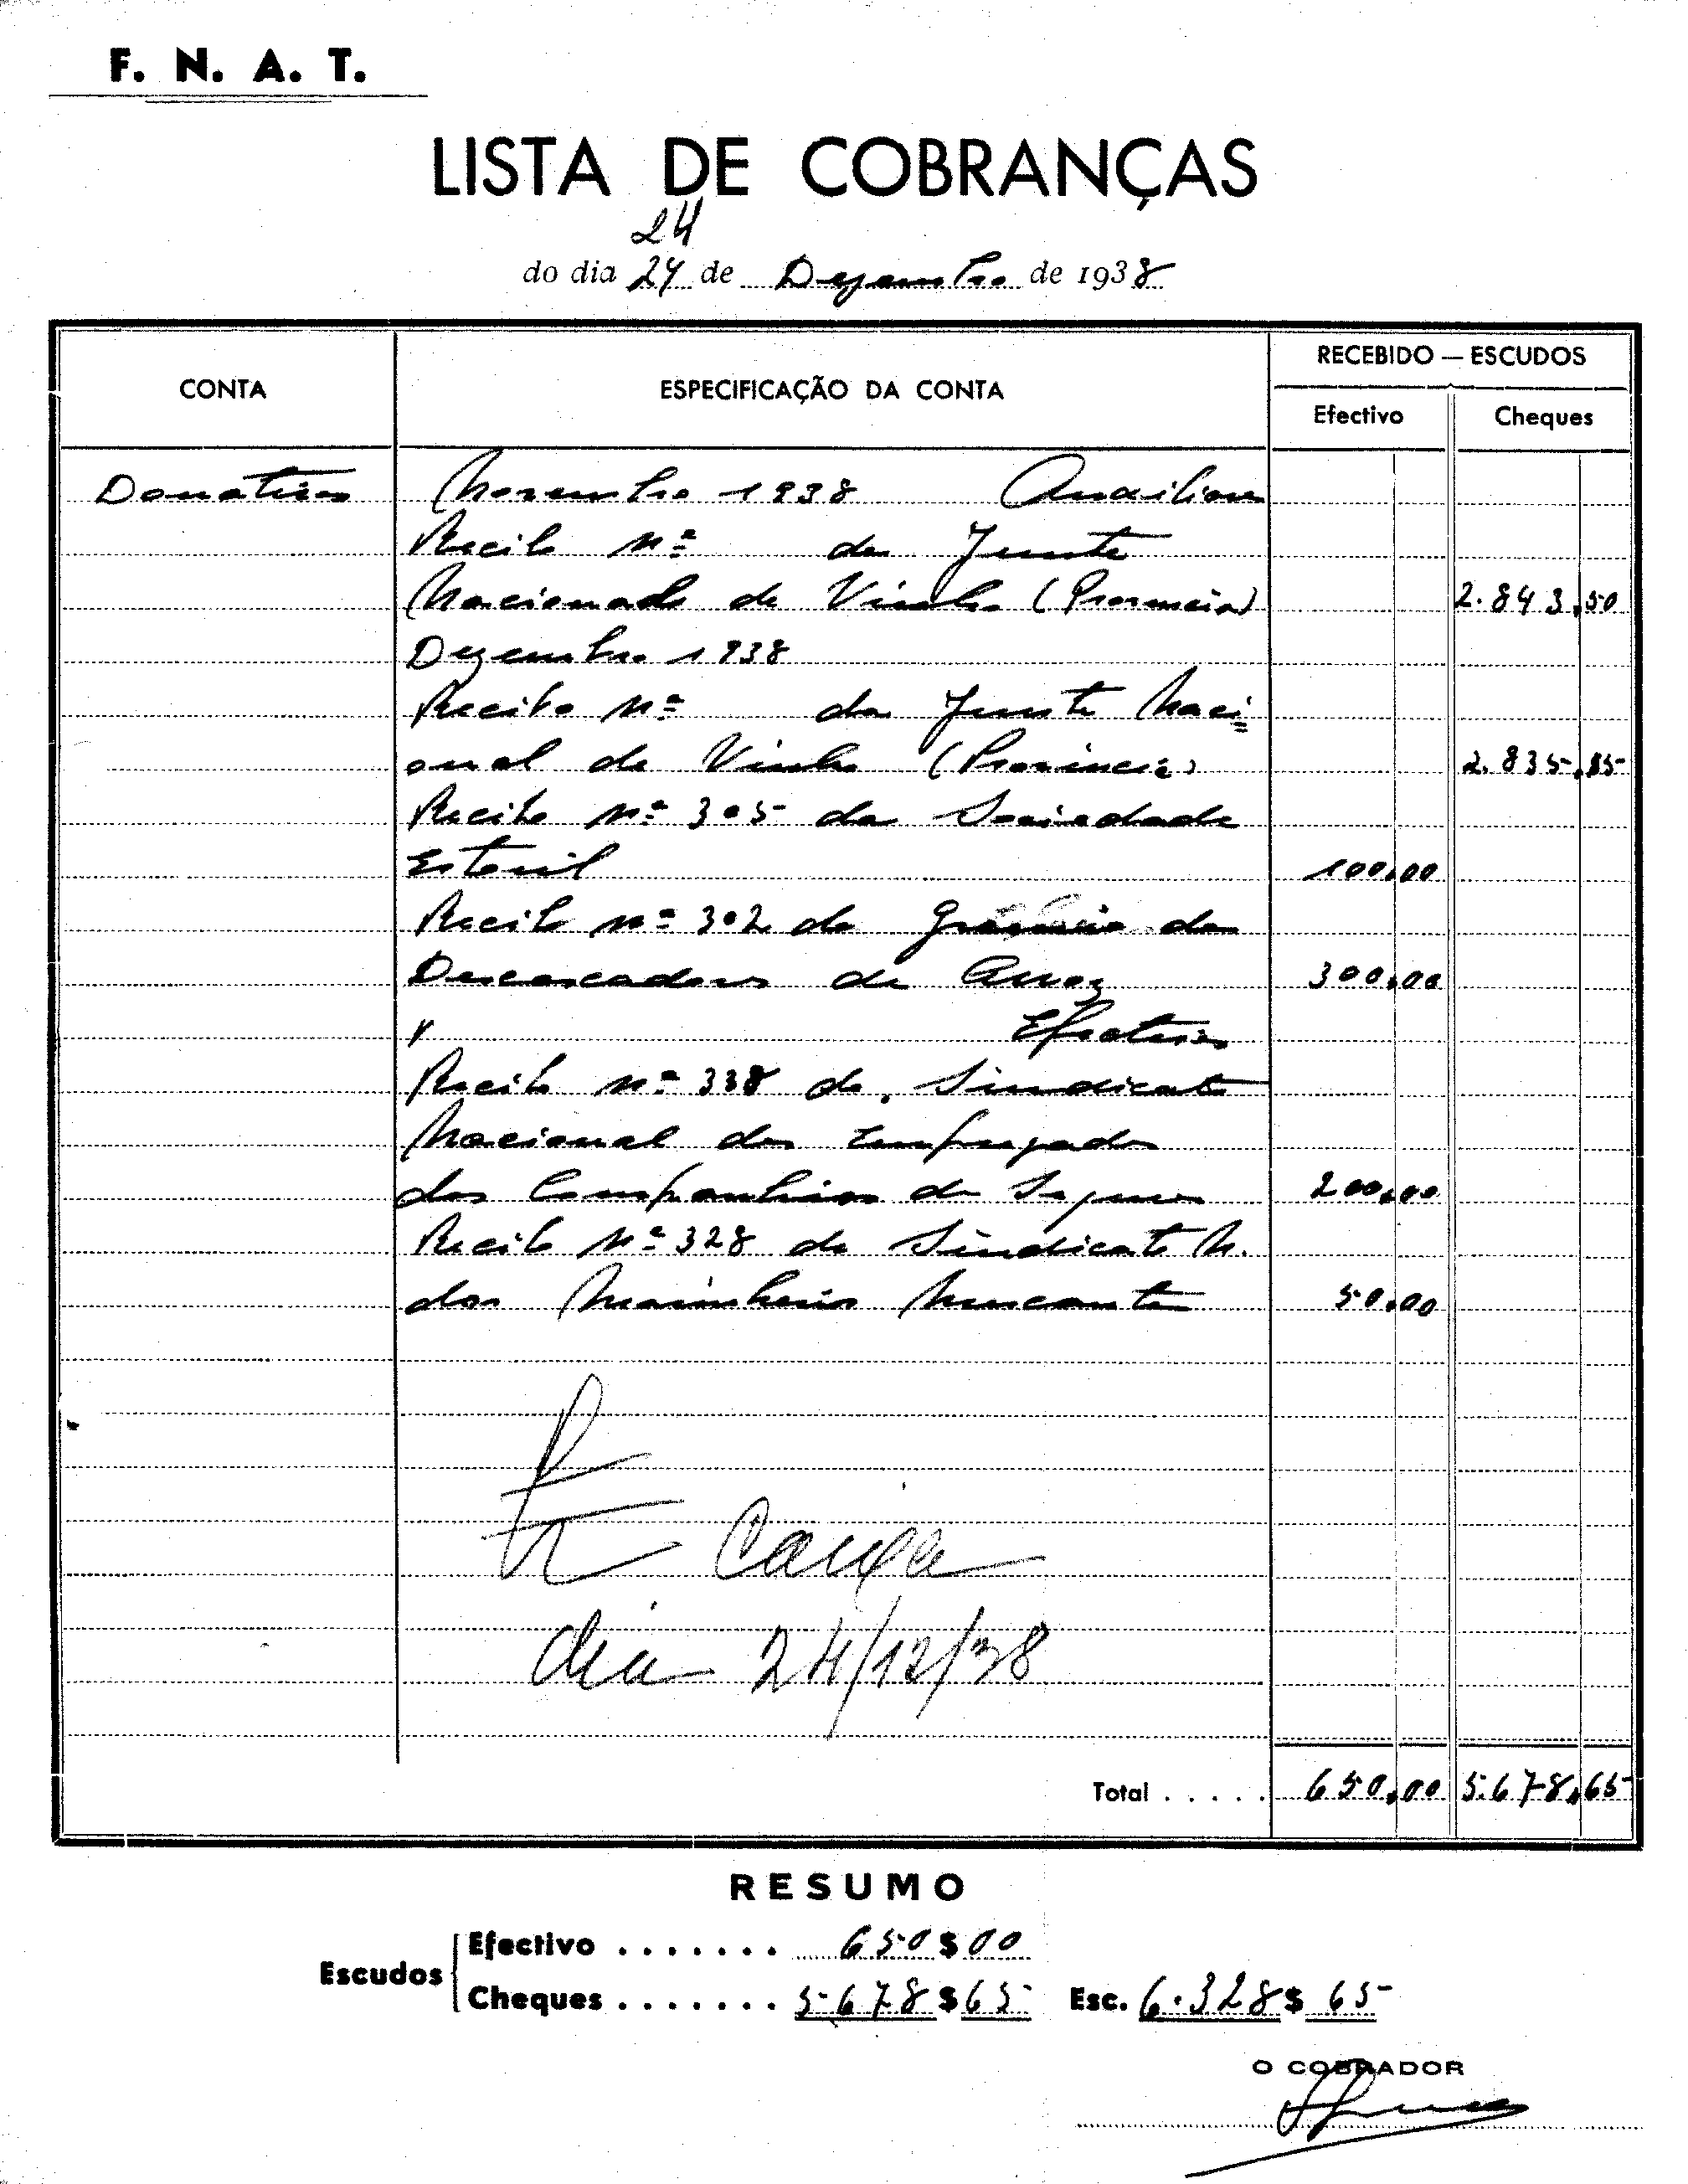 F. N. A. T.
LISTA DE COBRANÇAS
24
do dia 24 de Dezembro de 1938
CONTA
ESPECIFICAÇÃO DA CONTA
RECEBIDO — ESCUDOS
Efectivo
Cheques
Donativos Novembro 1938 Auxiliares
Recibo Nº da Junta
Nacional de Vinho (Provincia) 2.843,50
Dezembro 1938
Recibo Nº da Junta Naci=
onal do Vinho (Provincia) 2.835,15
Recibo Nº 305 da Sociedade
Estoril 100,00
Recibo nº 302 do Grémio dos
Descascadores de Arroz 300,00
Efectivos
Recibo nº 338 do Sindicato
Nacional dos Empregados
das Companhias de Seguros 200,00
Recibo Nº 328 do Sindicato N.
dos Marinheiros Mercantes 50,00
Caixa
dia 24/12/38
Total ..... 650,00 5.678,65
RESUMO
Escudos
Efectivo ....... 650$00
Cheques ....... 5.678$65 Esc. 6.328$65
O COBRADOR